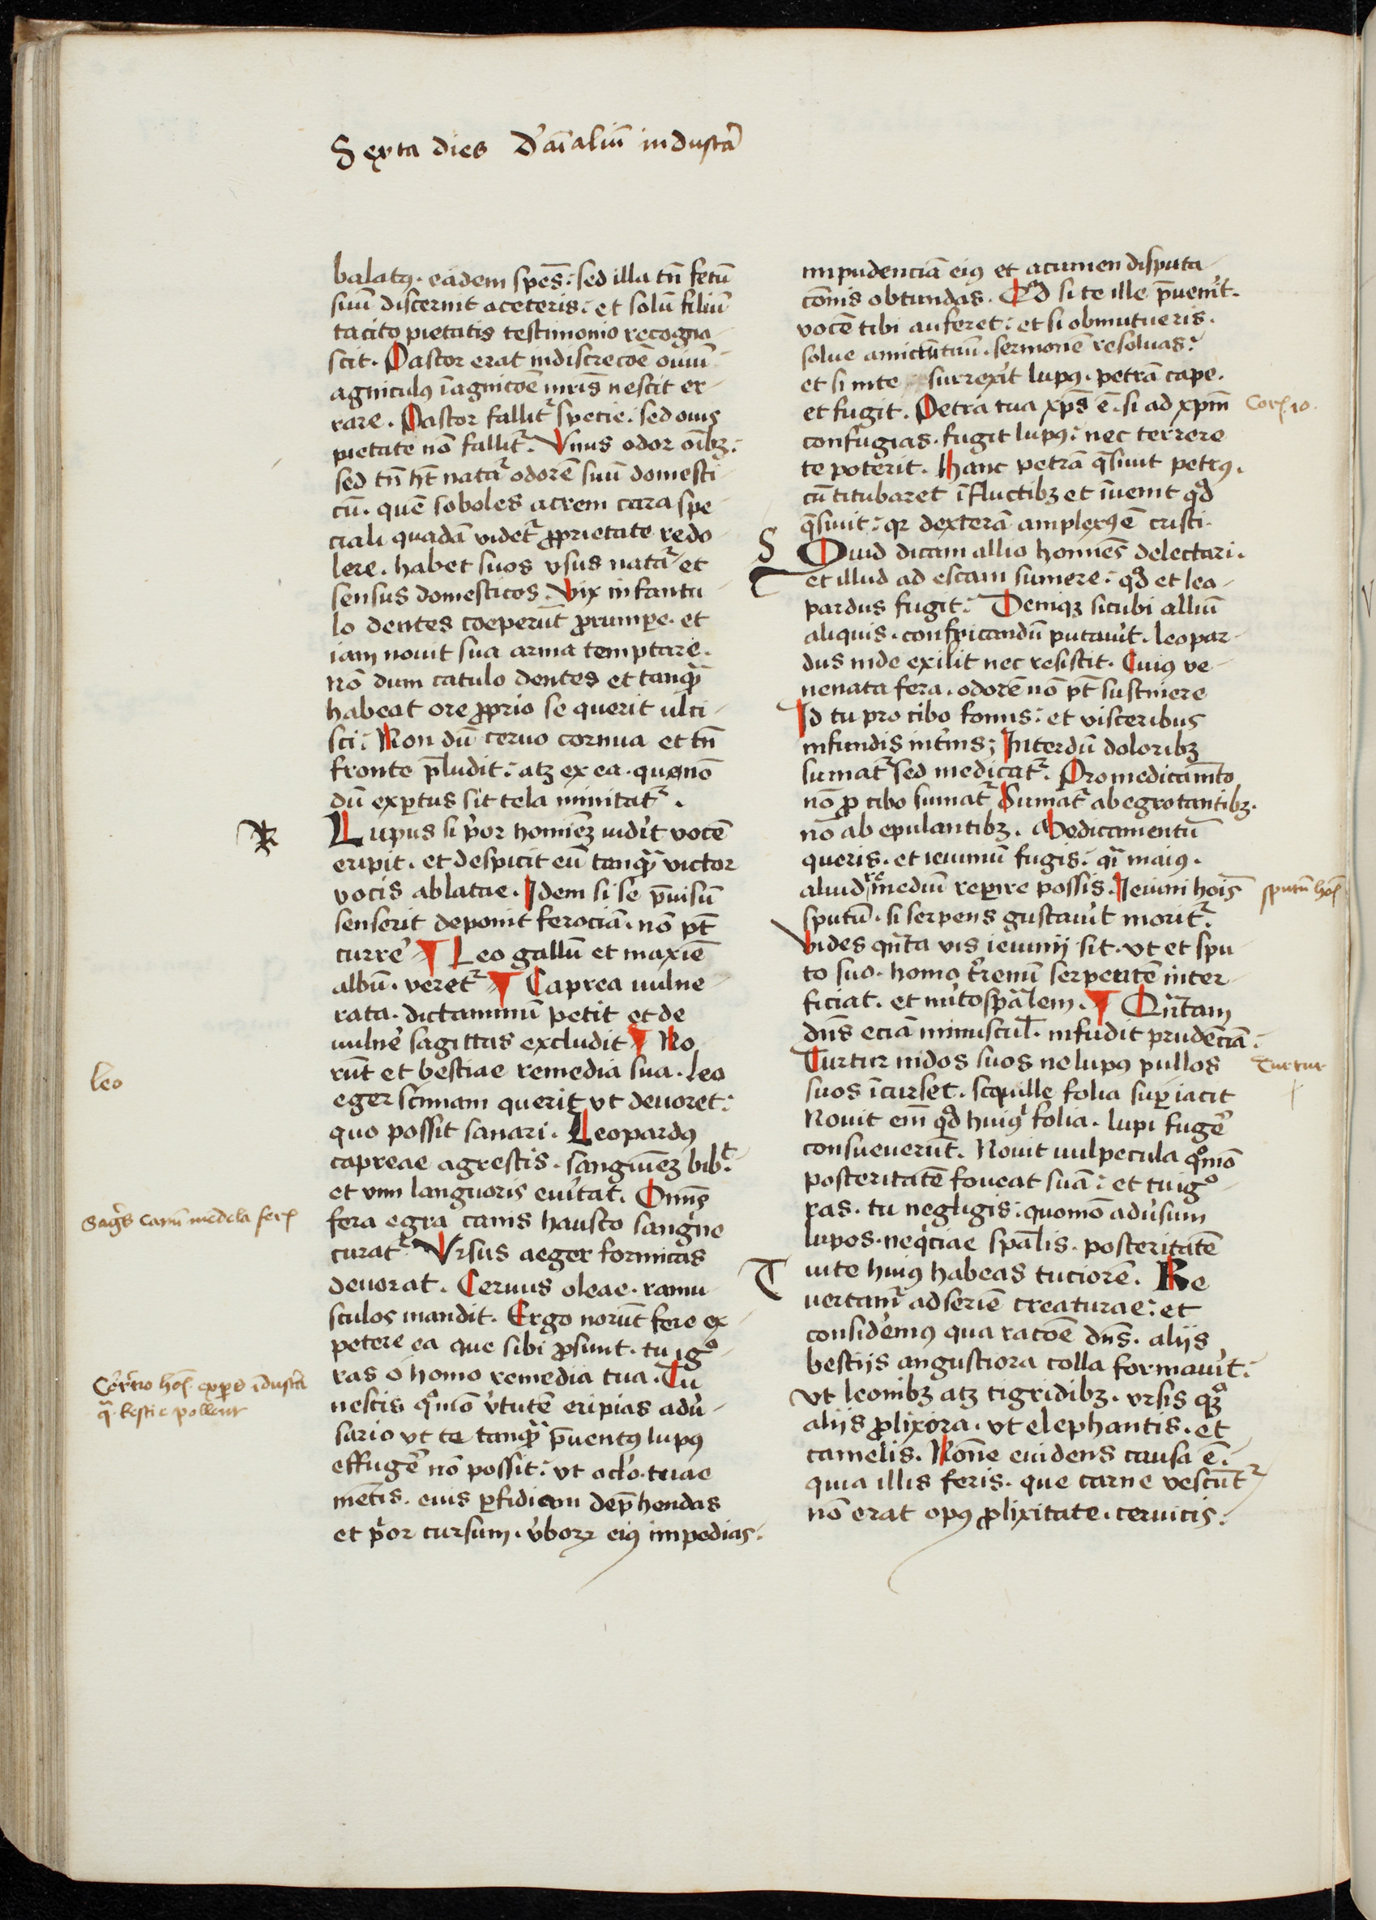 Sexta dies d'aīaliū industr̄a
balatꝯ. eadem spēs: sed illa tn̄ fetū
suū discernit aceteris: et solū filiū
tacito pietatis testimonio recogno-
scit. Pastor erat indiscrecōe ouiū
agniculꝯ ī agnicōe mr̄is nescit er-
rare. Pastor fallit᷑ specie. sed ouis
pietate nō fallit᷑. Vnus odor oībꝫ:
sed tn̄ ht̄ nata᷑ odorē suū domesti
cū. quē soboles acrem cara spe
ciali quadā videt᷑ ꝓprietate redo
lere. habet suos vsus nata᷑ et
sensus domesticos. Vix infantu
lo dentes coeperūt ꝓrumpe. et
iam nouit sua arma temptare.
Nō dum catulo dentes et tanqᷓ
habeat ore ꝓprio se querit ulci
sci: Non dū ceruo cornua et tn̄
fronte p̄ludit: atꝫ ex ea. que nō
dū expertus sit tela minitat᷑.
Lupus si p'or hominēꝫ uid'it vocē
eripit. et despicit eū tanqᷓ victor
vocis ablatae. Idem si se p̄uisū
senserit deponit ferociā. nō pt̄
curre' ¶ Leo gallū et maxīe
albū. veret᷑ ¶ Caprea uulne
rata. dictamnū petit et de
uulne' sagittas excludit ¶ No
rūt et bestiae remedia sua. Leo
eger scimiam querit vt deuoret:
quo possit sanari. Leopardꝯ
capreae agrestis. sanguinēꝫ bibᵗ:
et vim languoris euītat. Omīs
fera egra canis hausto sang'ne
curat᷑. Vrsus aeger formicas
deuorat. Ceruus oleae. ramu
sculos mandit. Ergo norūt fere ex
petere ea que sibi ꝓsunt. tu igᵒ
ras ó homo remedia tua. Tu
nescis qͦmō v'tutē eripias adu'
sario vt te tanqᷓ p̄uentꝯ lupꝯ
effuge' nō possit: vt oclo' tuae
mētis. eius ꝑfidiam dep̄hendas
et p'or cursum. v'boꝝ eiꝯ impedias:
impudenciā eiꝯ et acumen disputa
cōnis obtundas. Qͦd si te ille p̄uen'it.
vocē tibi auferet: et si obmutueris.
solue amictū tuū. sermonē resoluas:
et si in te surrexit lupꝯ. petrā cape.
et fugit. Petra tua xp̄s ē. si ad xp̄m
confugias. fugit lupꝯ: nec terrere
te poterit. Hanc petrā q̄siuit petrꝯ.
cū titubaret ī fluctibꝫ et īuenit qͦd
q̄siuit: qꝛ dexterā amplexꝯ ē cristi.
Quid dicam allio homīes delectari.
et illud ad escam sumere: qͦd et leo-
pardus fugit: Deniqꝫ sicubi alliū
aliquis. confricandū putau'it. leopar-
dus inde exilit nec resistit. Cuiꝯ ve-
nenata fera. odorē nō pt̄ sustinere
Id tu pro cibo fomis: et visceribus
infundis int'ins; Interdū doloribꝫ
sumat᷑ sed medicat᷑. Pro medicamt̄o
nō ꝓ cibo sumat᷑ Sumat᷑ ab egrotantibꝫ.
nō ab epulantibꝫ. Medicamentū
queris. et ieiuniū fugis: qͣi maiꝯ.
aliud remediū reperire possis. Ieiuni hoīs
sputū. si serpens gustau'it morit᷑.
Vides qᷓnta vis ieiunij sit. vt et spu
to suo. homo t'renū serpentē inter
ficiat. et m'ito spūalem. ¶ Qᷓntam
dn̄s eciā minuscul. infudit prudēciā:
Turtur nidos suos ne lupꝯ pullos
suos īcurset. squille folia suꝑ iacit
Nouit em̄ qͦd huiꝯ' folia. lupi fuge'
consueuerūt. Nouit uulpecula qͦmō
posteritatē foueat suā: et tu igᵒ-
ras. tu negligis: quomō adu'sum
lupos. neq'ciae spūalis. posteritatē
uite huiꝯ habeas tuciorē. Re
uertam᷑ ad seriē creaturae: et
conside'mꝯ qua racōe dn̄s. aliis
bestijs angustiora colla formau'it:
vt leonibꝫ atꝫ tigridibꝫ. vrsis qꝫ
aliis ꝓlixiora. vt elephantis. et
camelis. Nōne euidens causa ē:
quia illis feris. que carne vescūt᷑
nō erat opꝯ ꝓlixitate. ceruicis:
S
T
Leo
Sag's canū medela fer'
Cor'.10.
sputū hoīs
Turtur